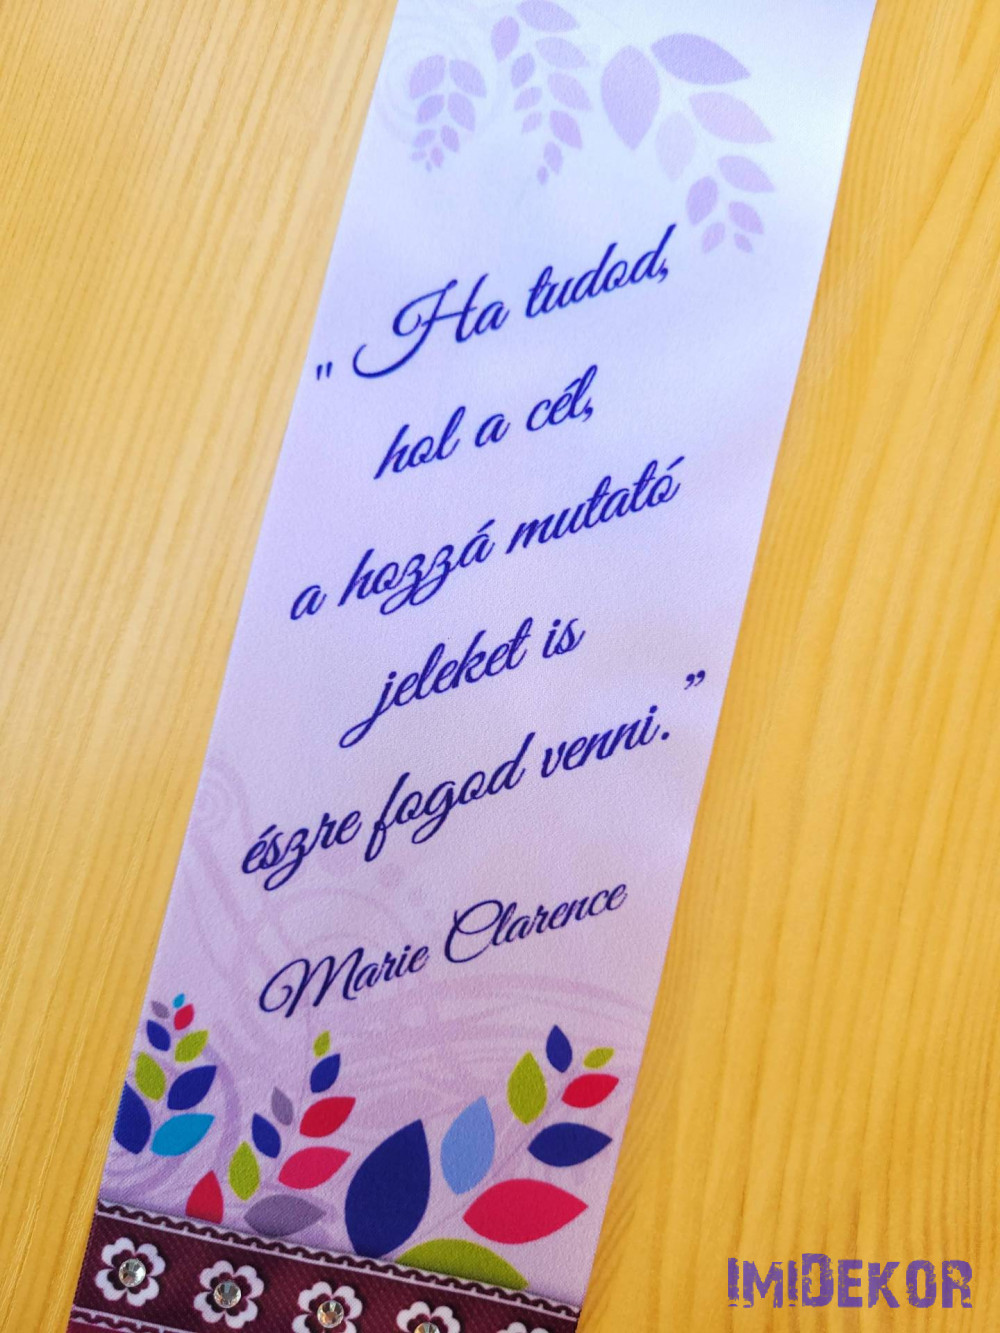 " Ha tudod,
hol a cél,
a hozzá mutató
jeleket is
észre fogod venni.”
Marie Clarence
IMIDEKOR